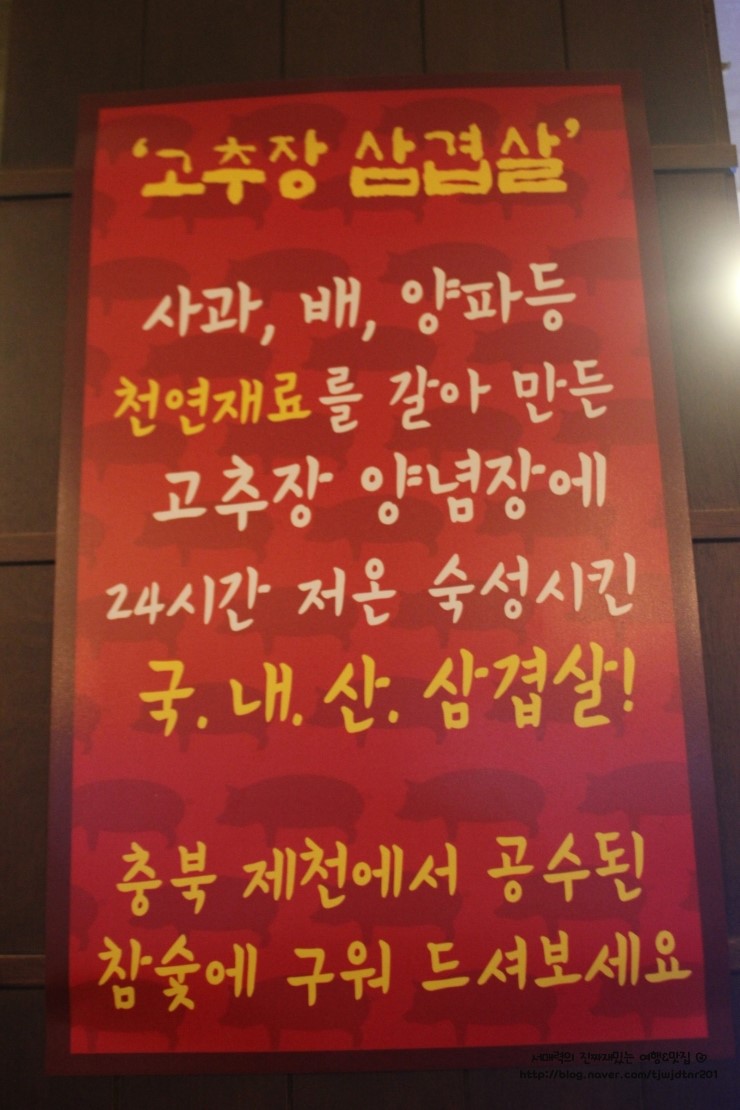 ‘고추장 삼겹살’
사과, 배, 양파등
천연재료를 갈아 만든
고추장 양념장에
24시간 저온 숙성시킨
국. 내. 산. 삼겹살!
충북 제천에서 공수된
참숯에 구워 드셔보세요
여행&맛집
http://blog.naver.com/tjwjdtnr201